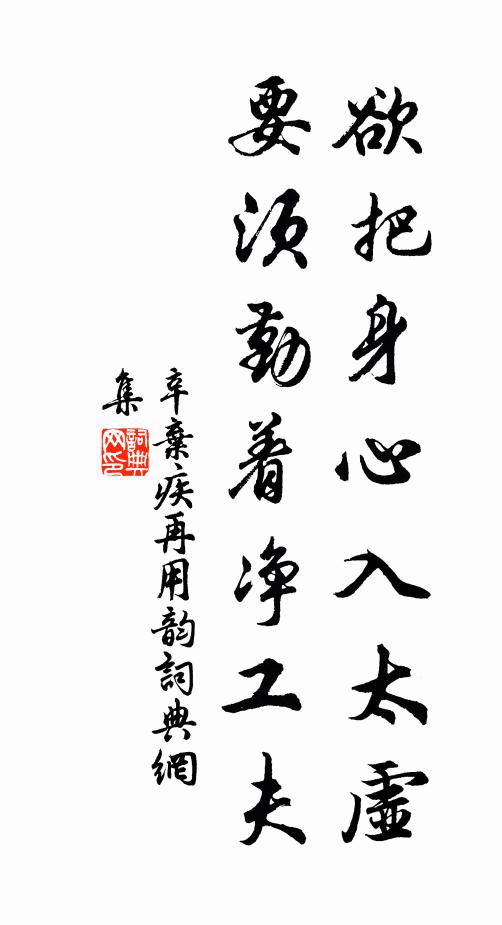 欲把身心入太虛
要須勤着净工夫
辛棄疾再用韵詞典網
集
詞典
网印